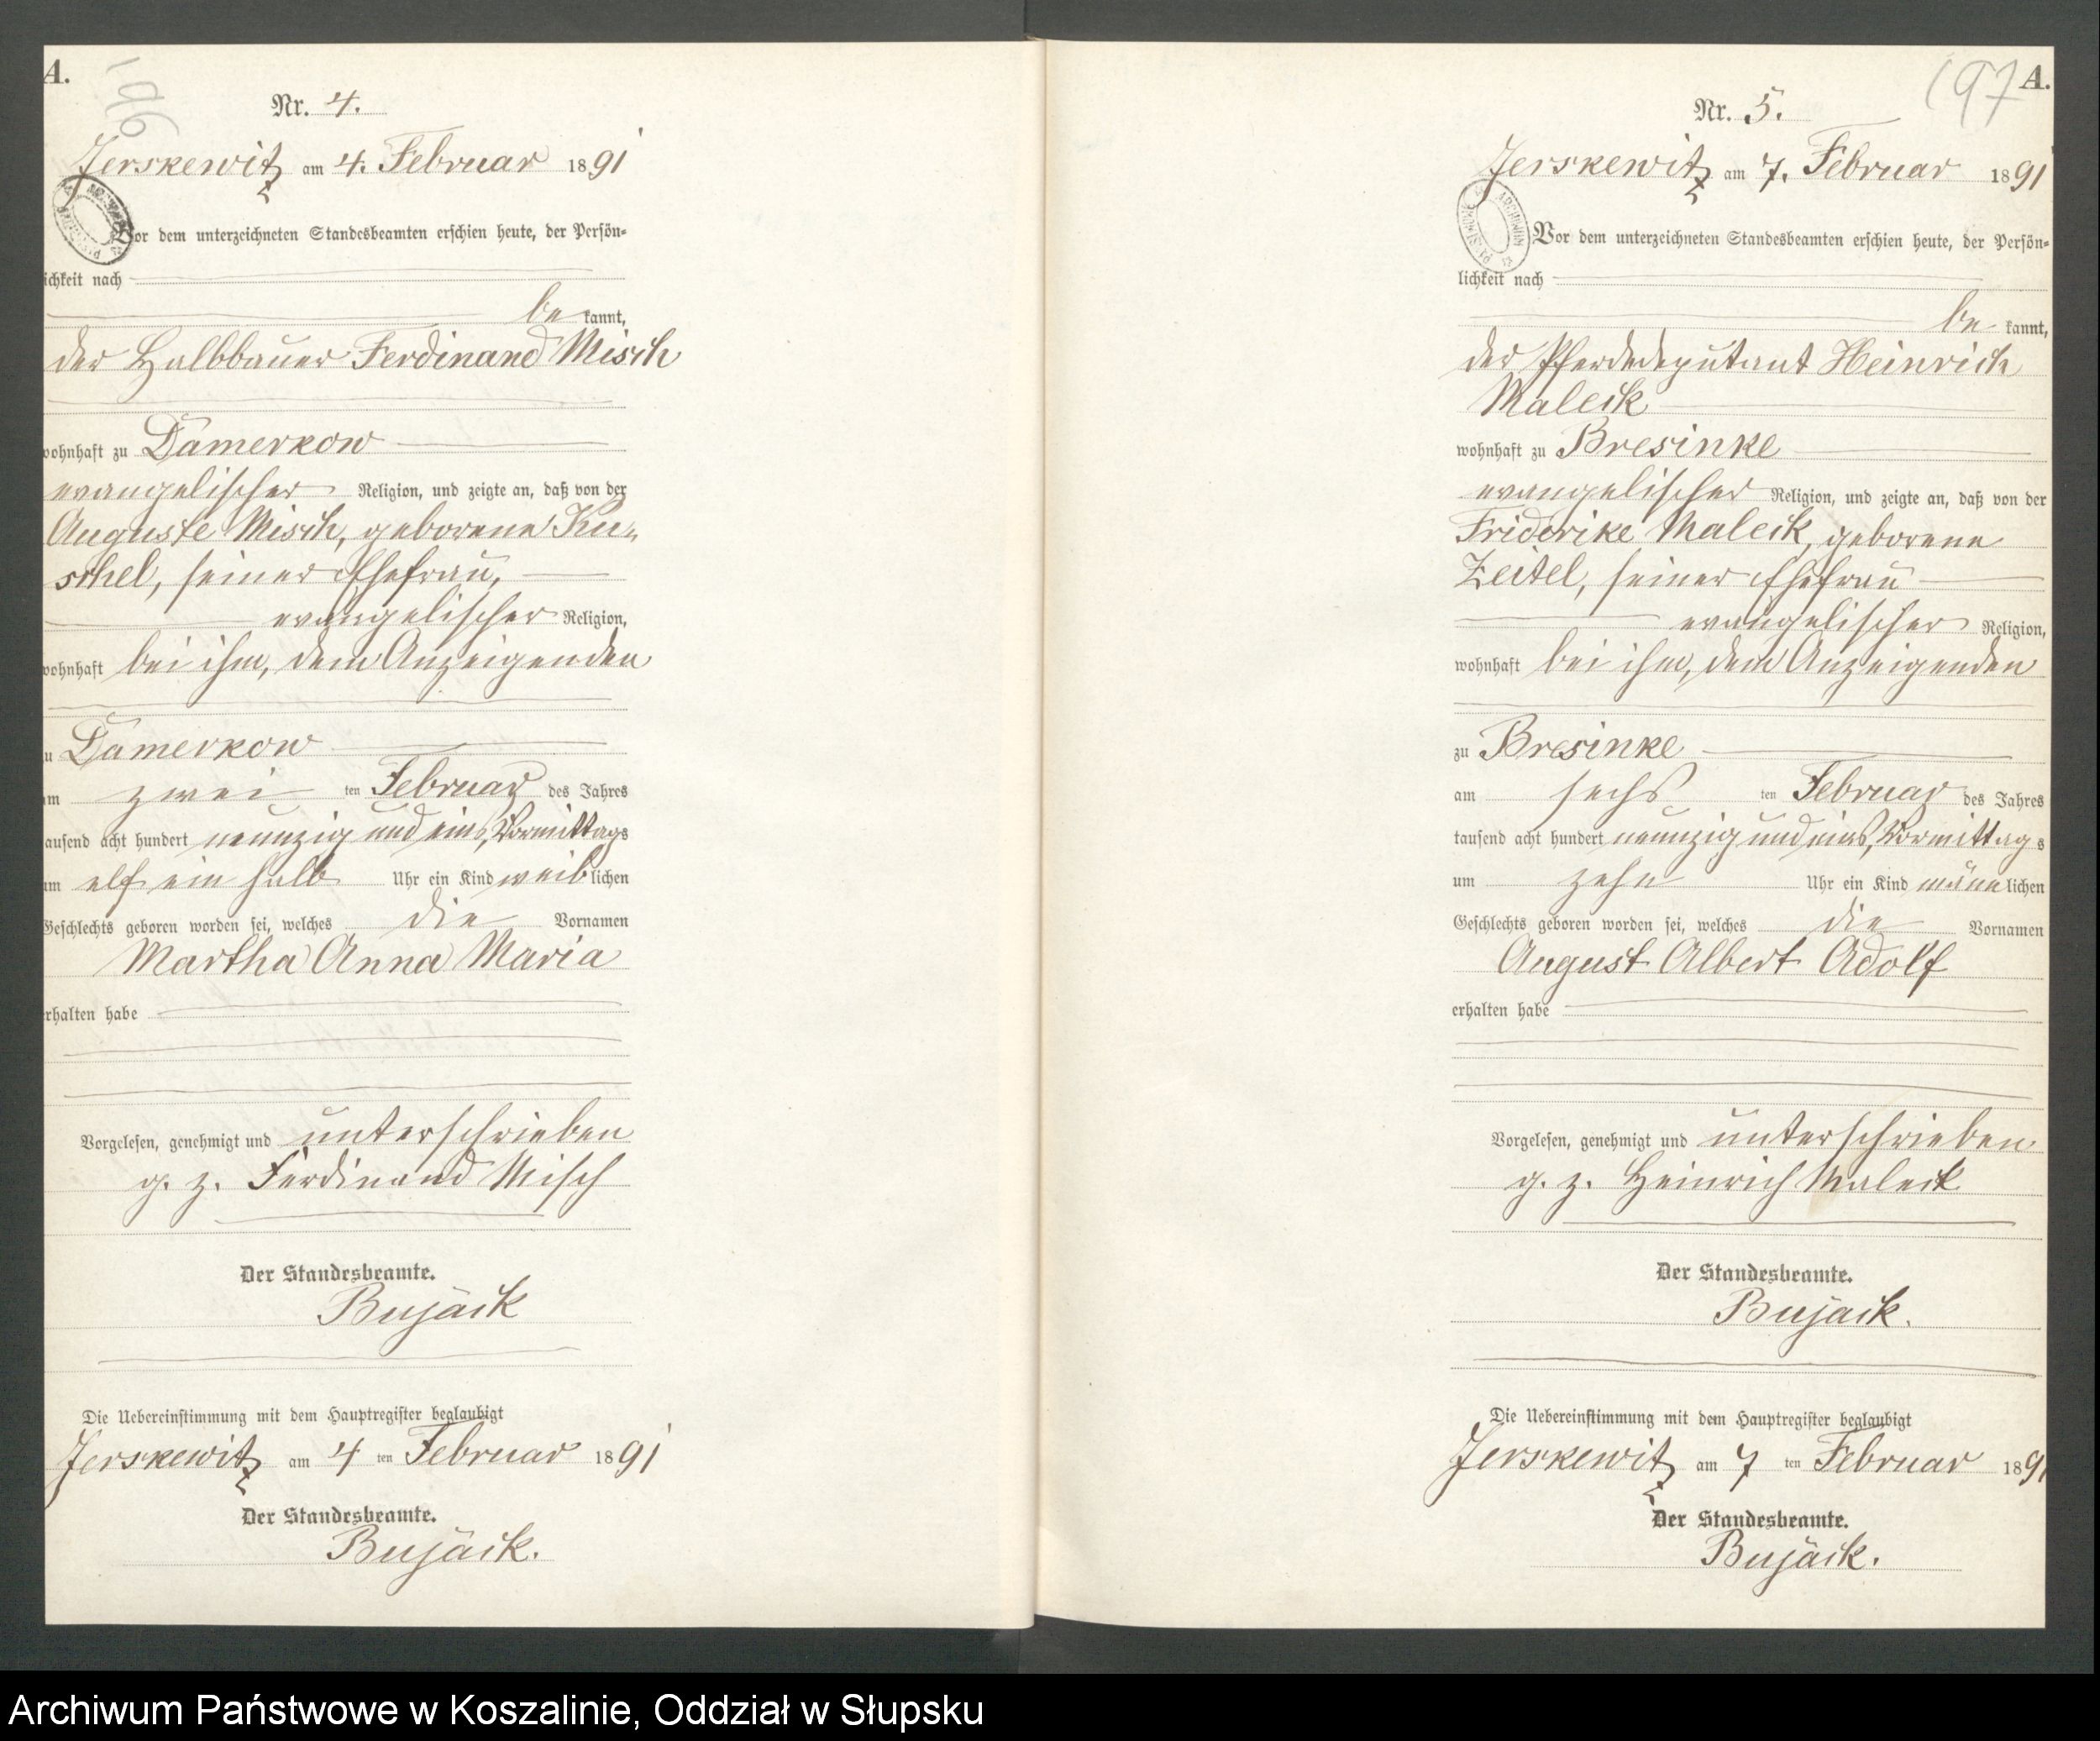 A.
196
Nr. 4.
Jerskewitz am 4. Februar 1891
Vor dem unterzeichneten Standesbeamten erschien heute, der Persön-
lichkeit nach
be kannt,
der Halbbauer Ferdinand Misch
wohnhaft zu Damerkow
evangelischer Religion, und zeigte an, daß von der
Auguste Misch, geborene Ku-
schel, seiner Ehefrau,
evangelischer Religion,
wohnhaft bei ihm, dem Anzeigenden
zu Damerkow
am zwei ten Februar des Jahres
tausend acht hundert neunzig und eins, Vormittags
um elf ein halb Uhr ein Kind weiblichen
Geschlechts geboren worden sei, welches die Vornamen
Martha Anna Maria
erhalten habe
Vorgelesen, genehmigt und unterschrieben
g. z. Ferdinand Misch
Der Standesbeamte.
Bujack
Die Uebereinstimmung mit dem Hauptregister beglaubigt
Jerskewitz am 4 ten Februar 1891
Der Standesbeamte.
Bujack.
197 A.
Nr. 5.
Jerskewitz am 7. Februar 1891
ARCHIWUM
Vor dem unterzeichneten Standesbeamten erschien heute, der Persön-
lichkeit nach
be kannt,
der Pferdedeputant Heinrich
Maleck
wohnhaft zu Bresinke
evangelischer Religion, und zeigte an, daß von der
Friderike Maleck, geborene
Zeitel, seiner Ehefrau
evangelischer Religion,
wohnhaft bei ihm, dem Anzeigenden
zu Bresinke
am sechs ten Februar des Jahres
tausend acht hundert neunzig und eins, Vormittags
um zehn Uhr ein Kind männlichen
Geschlechts geboren worden sei, welches die Vornamen
August Albert Adolf
erhalten habe
Vorgelesen, genehmigt und unterschrieben
g. z. Heinrich Maleck
Der Standesbeamte.
Bujack.
Die Uebereinstimmung mit dem Hauptregister beglaubigt
Jerskewitz am 7 ten Februar 1891
Der Standesbeamte.
Bujack.
Archiwum Państwowe w Koszalinie, Oddział w Słupsku